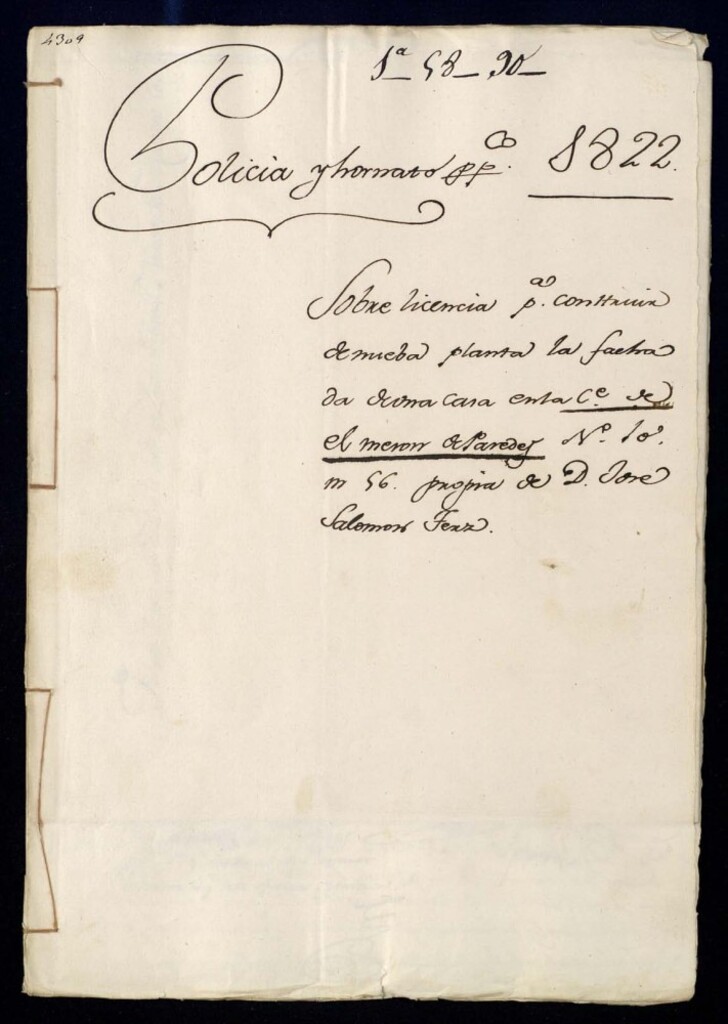 4309
1ª 58 90
Policia y hornato ppco. 1822.
Sobre licencia pª. construir
de nueba planta la facha
da de una casa en la Ce. de
el meson de Paredes Nº. 10.
m 56. propia de D. José
Salomon Ferz.